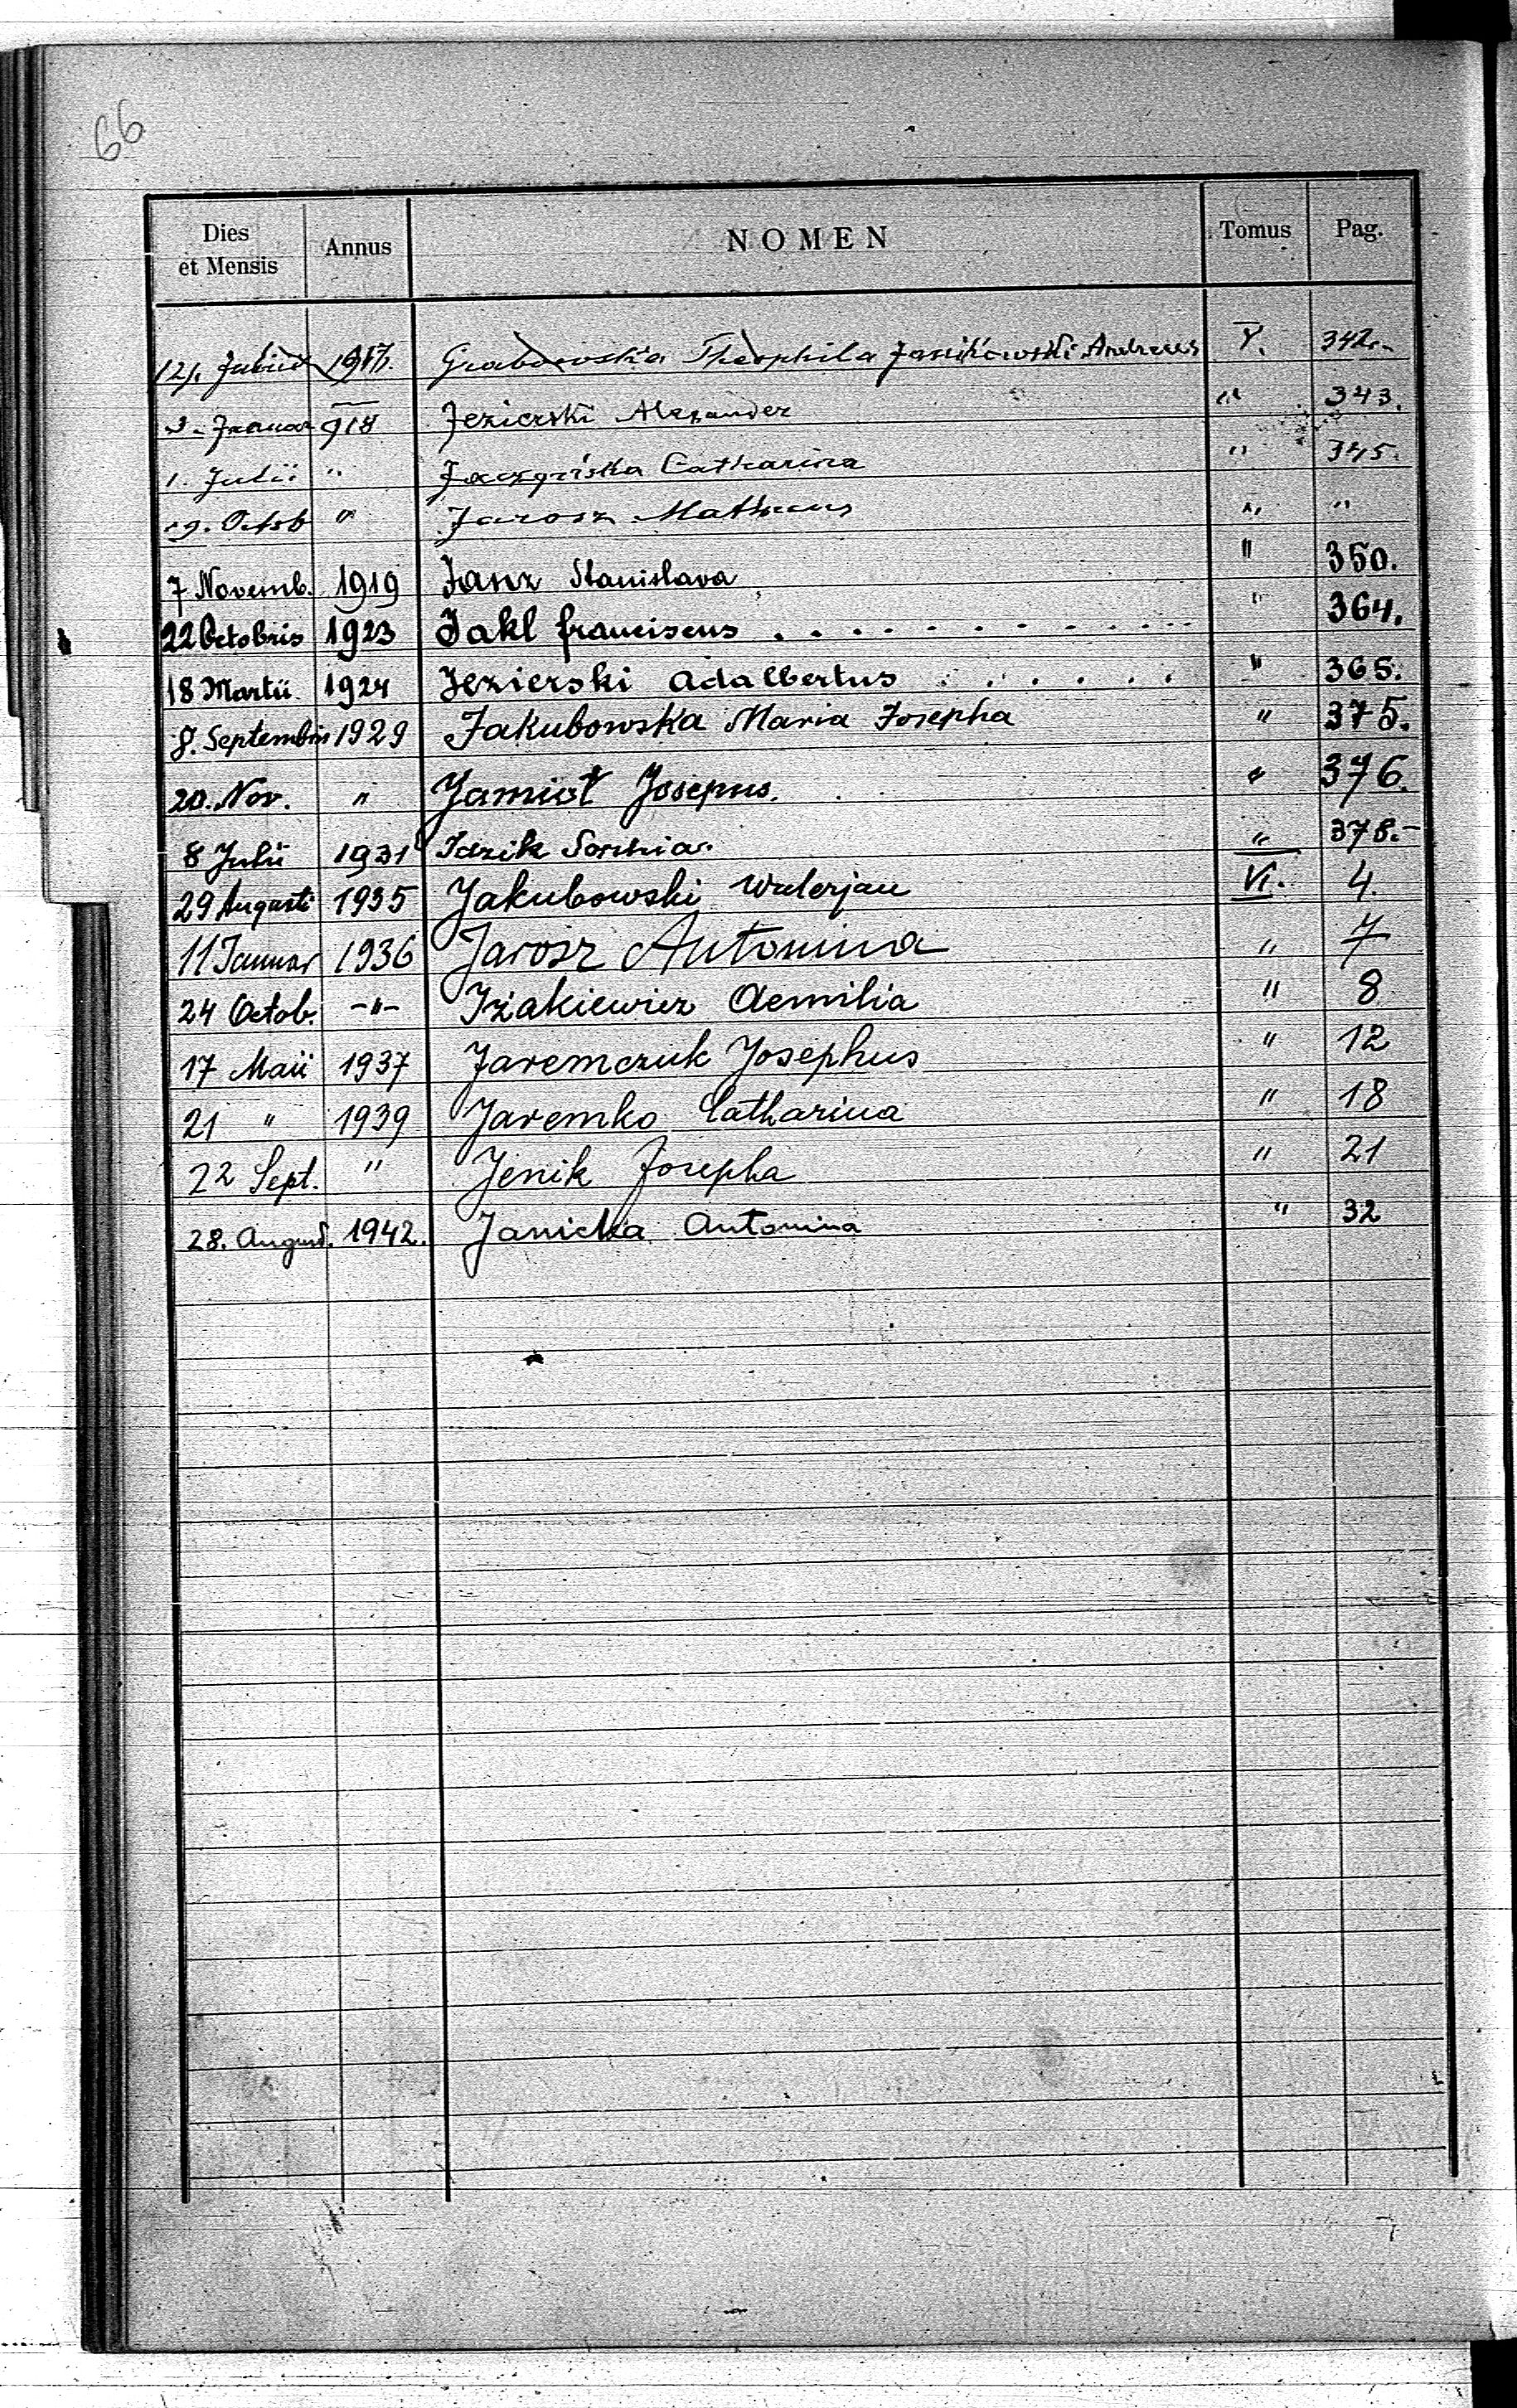 66
Dies et Mensis Annus NOMEN Tomus Pag.
12. Julii 1917. Grabowska Theophila Janikowski Andreas V. 342.-
3. Januar 918 Jezierski Alexander " 343.
1. Julii " Catharina " 345.
19. Octob " Jarosz Matheus " "
7 Novemb. 1919 Janz Stanislava " 350.
22 Octobris 1923 Jakl franciscus . . . . . . . . . . . " 364.
18 Martii 1924 Jezierski Adalbertus . . . . . . " 365.
8. Septembris 1929 Jakubowska Maria Josepha " 375.
20. Nov. " Jamiot Josepus. " 376.
8 Julii 1931 Idzik Sophia. " 378.-
29 Augusti 1935 Jakubowski Walerjan VI. 4.
11 Januar 1936 Jarosz Antonina " 7
24 Octob. -"- Iżakiewicz Aemilia " 8
17 Maii 1937 Jaremczuk Josephus " 12
21 " 1939 Jaremko Catharina " 18
22 Sept. " Jenik Josepha " 21
28. August. 1942. Janicka Antonina " 32